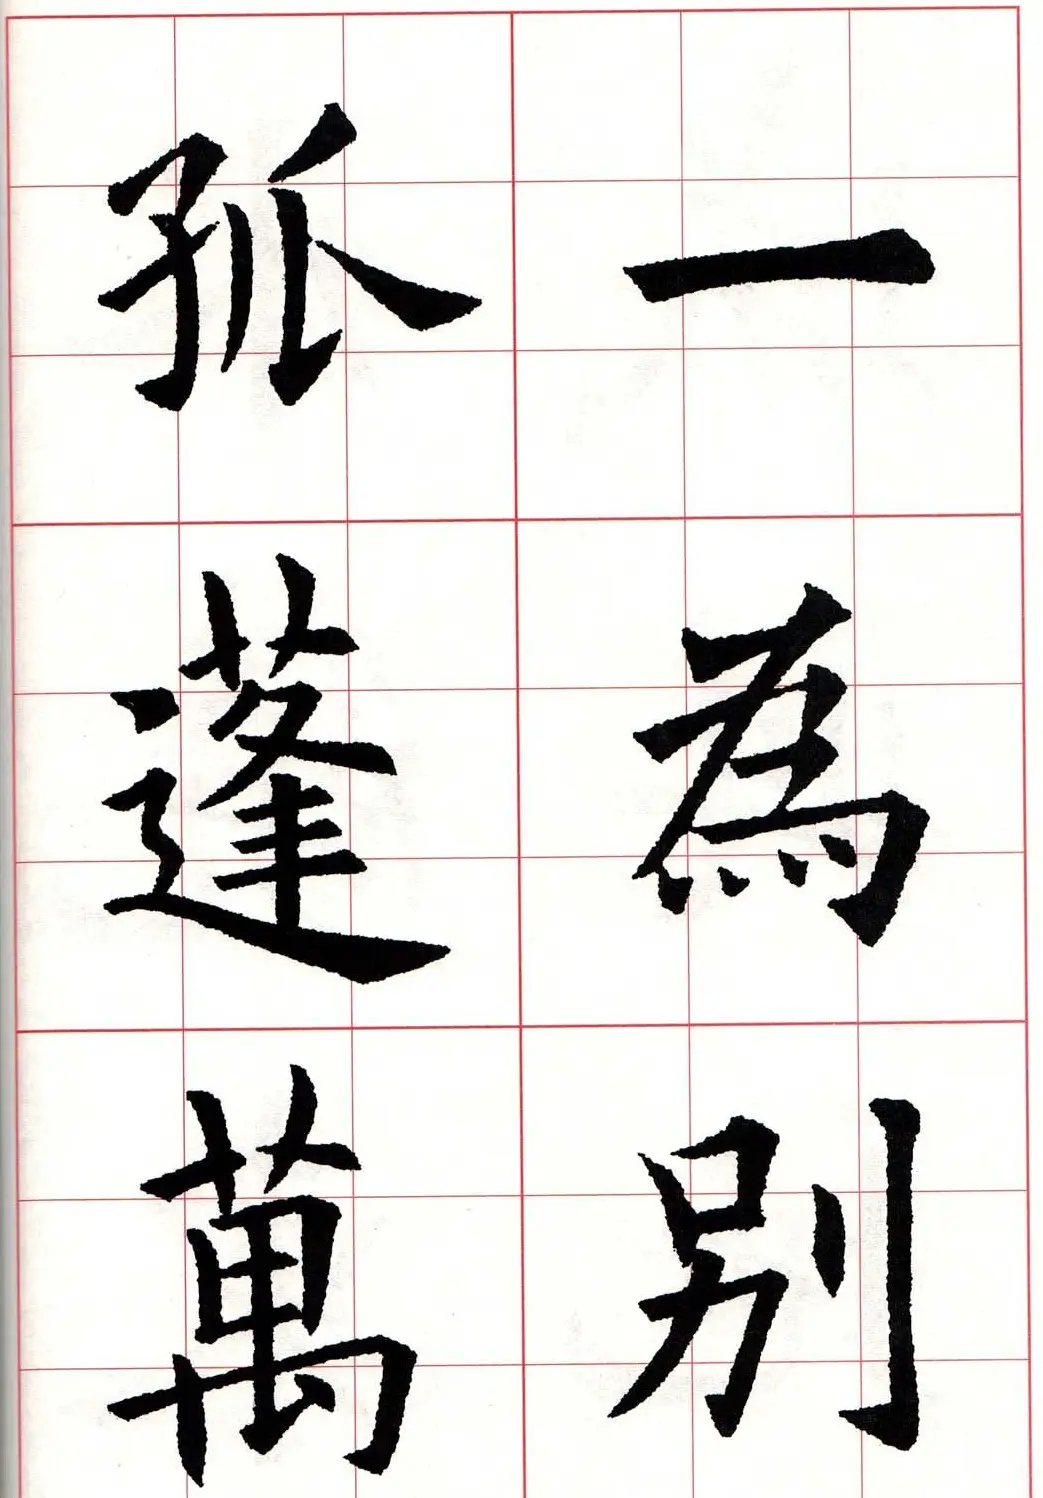 一為別
孤蓬萬